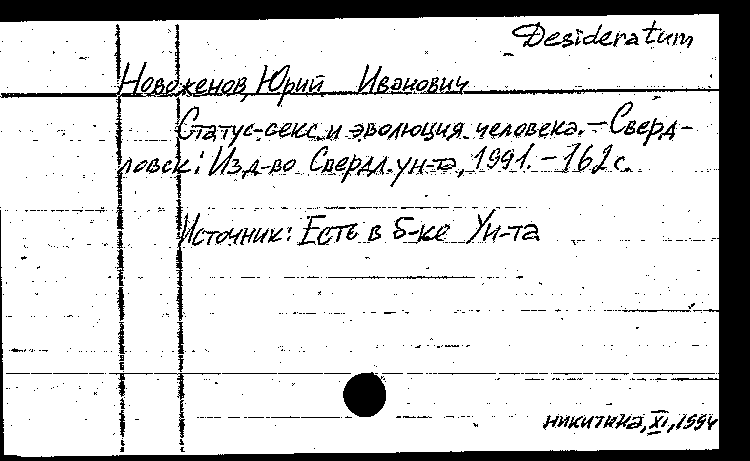 Desideratum
Новоженов, Юрий Иванович
Статус-секс и эволюция человека. – Сверд-
ловск: Изд-во Свердл. ун-та, 1991. – 162 с.
Источник: Есть в б-ке Ун-та
никитина, XI, 1994